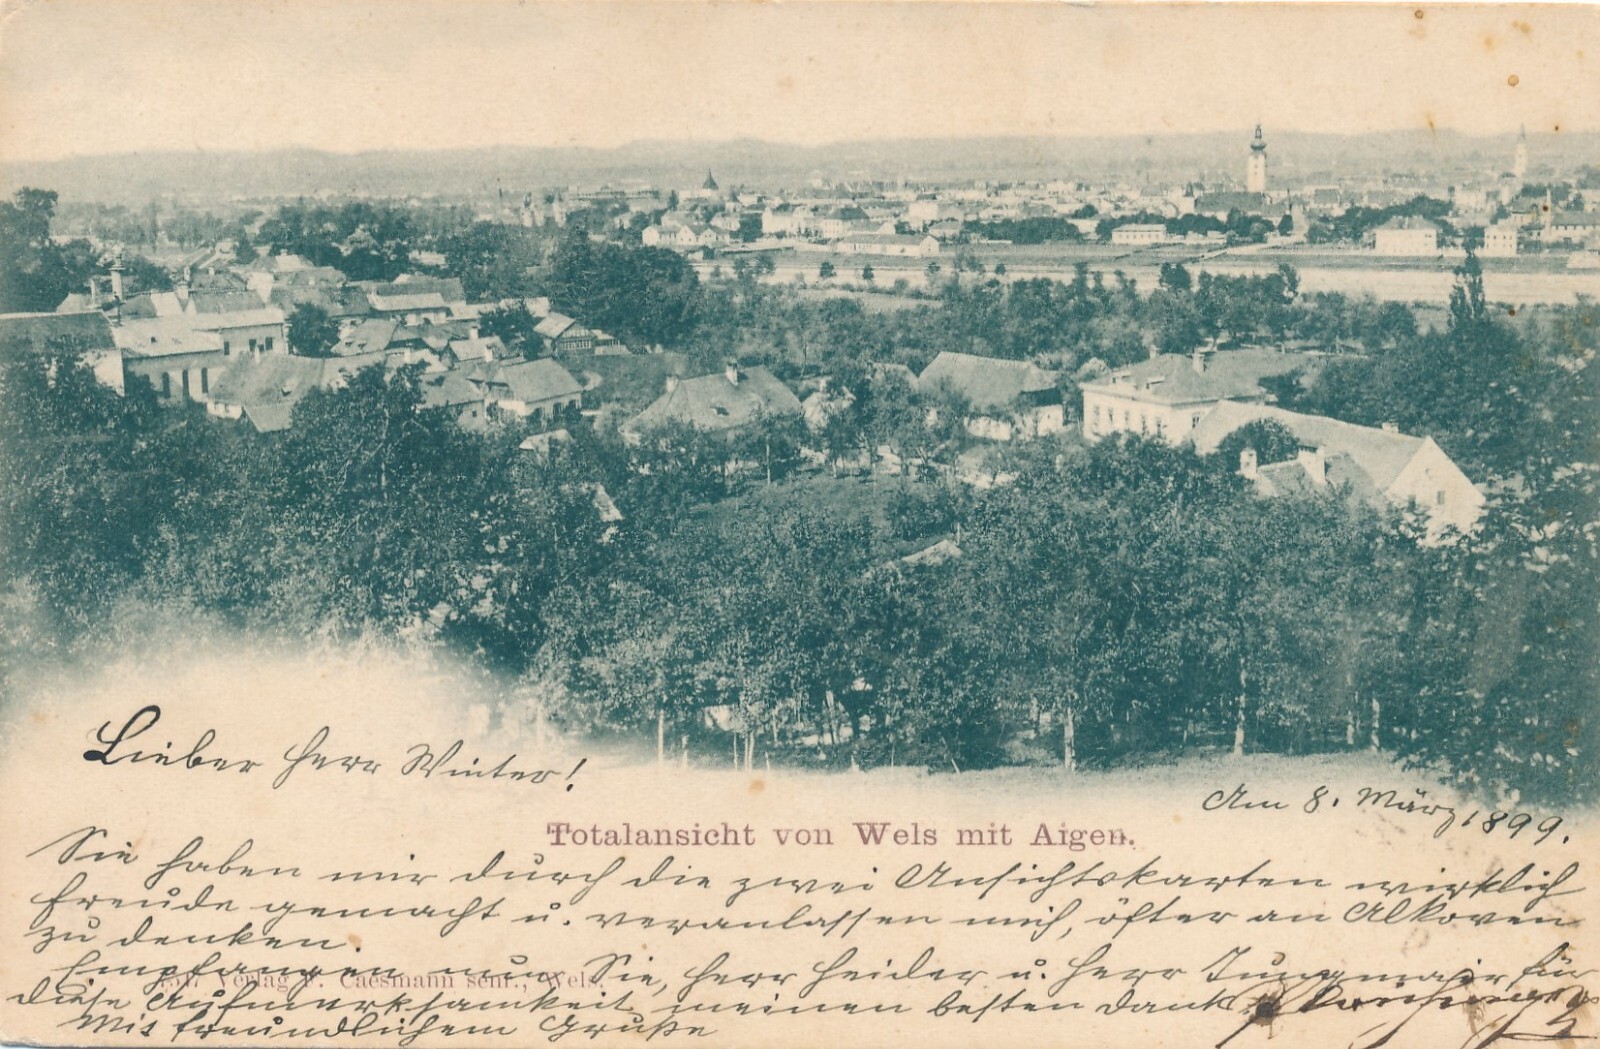 Lieber Herr Winter!
Am 8. März 1899.
Totalansicht von Wels mit Aigen.
Sie haben mir durch die zwei Ansichtskarten wirklich
Freude gemacht u. veranlassen mich, öfter an Alkoven
zu denken.
Empfangen nun Sie, Herr Heider u. Herr Jungmair, für
Verlag v. Caesmann senr., Wels.
diese Aufmerksamkeit meinen besten Dank
Mit freundlichem Gruße